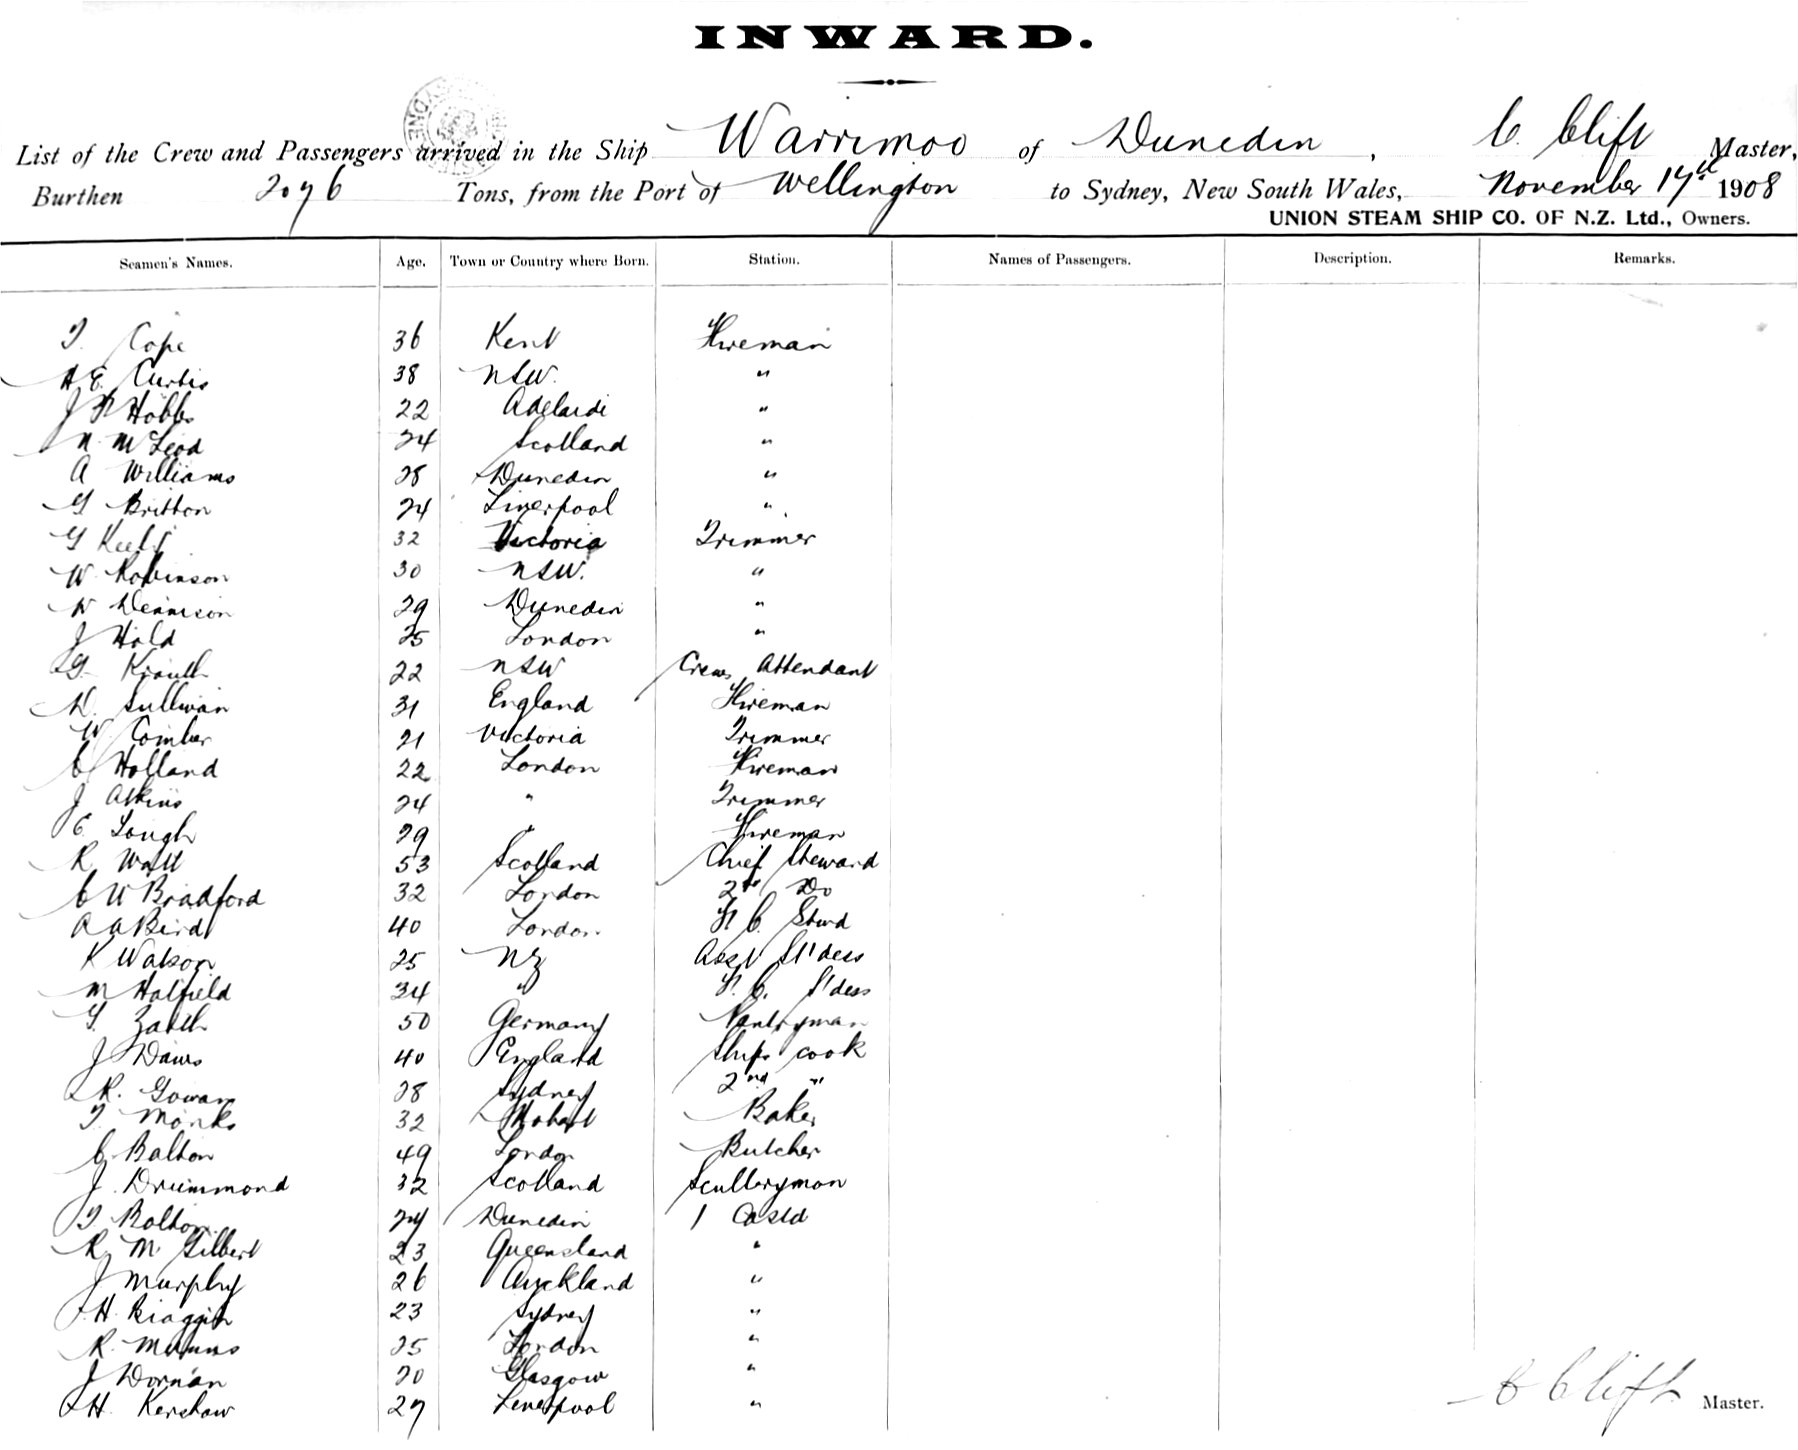 INWARD.
List of the Crew and Passengers arrived in the Ship Warrimoo of Dunedin, C. Clift Master,
Burthen 2076 Tons, from the Port of Wellington to Sydney, New South Wales, November 17th 1908
UNION STEAM SHIP CO. OF N.Z. Ltd., Owners.
Seamen's Names. Age. Town or Country where Born. Station. Names of Passengers. Description. Remarks.
T. Cope 36 Kent Fireman
A E. Curtis 38 NSW. "
J F Hobbs 22 Adelaide "
N. McLeod 24 Scotland "
A Williams 28 Dunedin "
G Britton 24 Liverpool "
G 32 Victoria Trimmer
W. Robinson 30 NSW. "
W Dennison 29 Dunedin "
J Hold 25 London "
G. Krauth 22 NSW Crews Attendant
D. Sullivan 31 England Fireman
W. Comber 21 Victoria Trimmer
C Holland 22 London Fireman
J Atkins 24 " Trimmer
C. Lough 29 " Fireman
R Watt 53 Scotland Chief Steward
C W Bradford 32 London 2nd Do
A A Bird 40 London F. C. Stwd
K Watson 25 NZ Asst St'dess
M Hatfield 34 " F. C. S'dess
50 Germany Pantryman
J Daws 40 England Ships cook
R. Gowans 28 Sydney 2nd "
T. Monks 32 Hobart Baker
C. Balton 49 London Butcher
J. Drummond 32 Scotland Sculleryman
T Bolton 24 Dunedin 1 Castd
R. M. Gilbert 23 Queensland "
J Murphy 26 Auckland "
H. 23 Sydney "
R. 25 London "
J Dornan 20 Glasgow "
H. Kershaw 27 Liverpool "
C Clift Master.